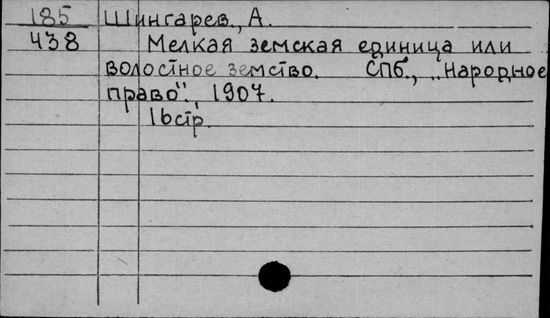 185 Шингарев, А.
438 Мелкая земская единица или
волостное земство. СПб., „Народное
право", 1907.
16стр.